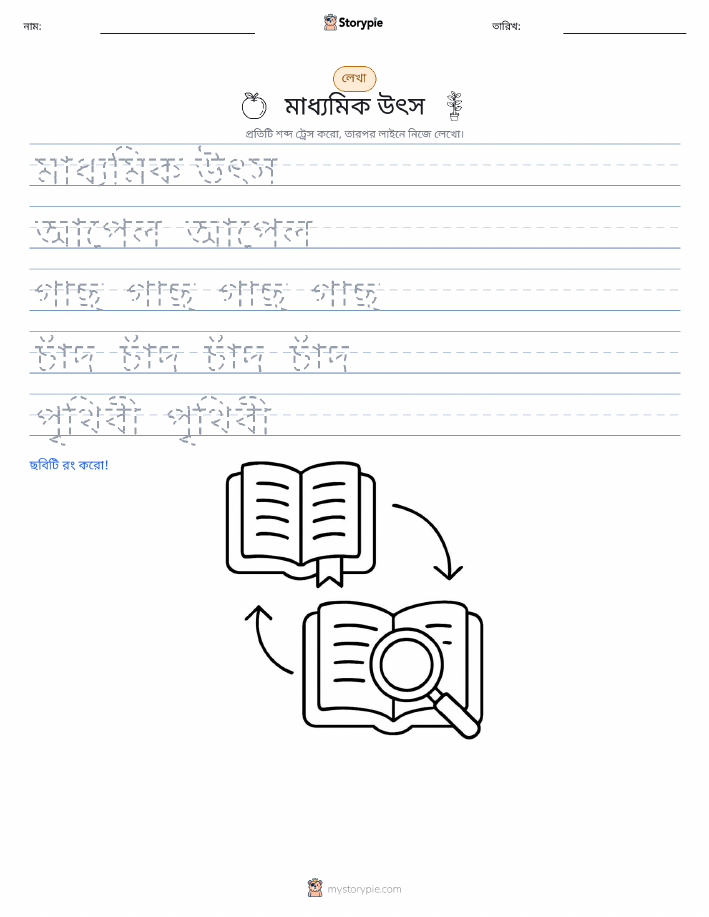 নাম:
Storypie
তারিখ:
লেখা
মাধ্যমিক উৎস
প্রতিটি শব্দ ট্রেস করো, তারপর লাইনে নিজে লেখো।
মাধ্যমিক উৎস
আপেল আপেল
গাছ গাছ গাছ গাছ
চাঁদ চাঁদ চাঁদ চাঁদ
পৃথিবী পৃথিবী
ছবিটি রং করো!
mystorypie.com